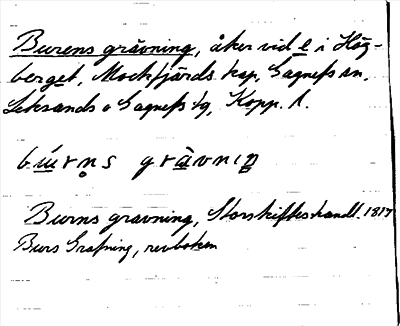 Burens grävning, åker vid e i Hög-
berget, Mockfjärds kap, Gagnefs sn,
Leksands o Gagnefs tg, Kopp. l.
bu̅rn̥s grävnıŋ
Burns gravning, Storskifteshandl. 1817
Burs Grafning, revboken